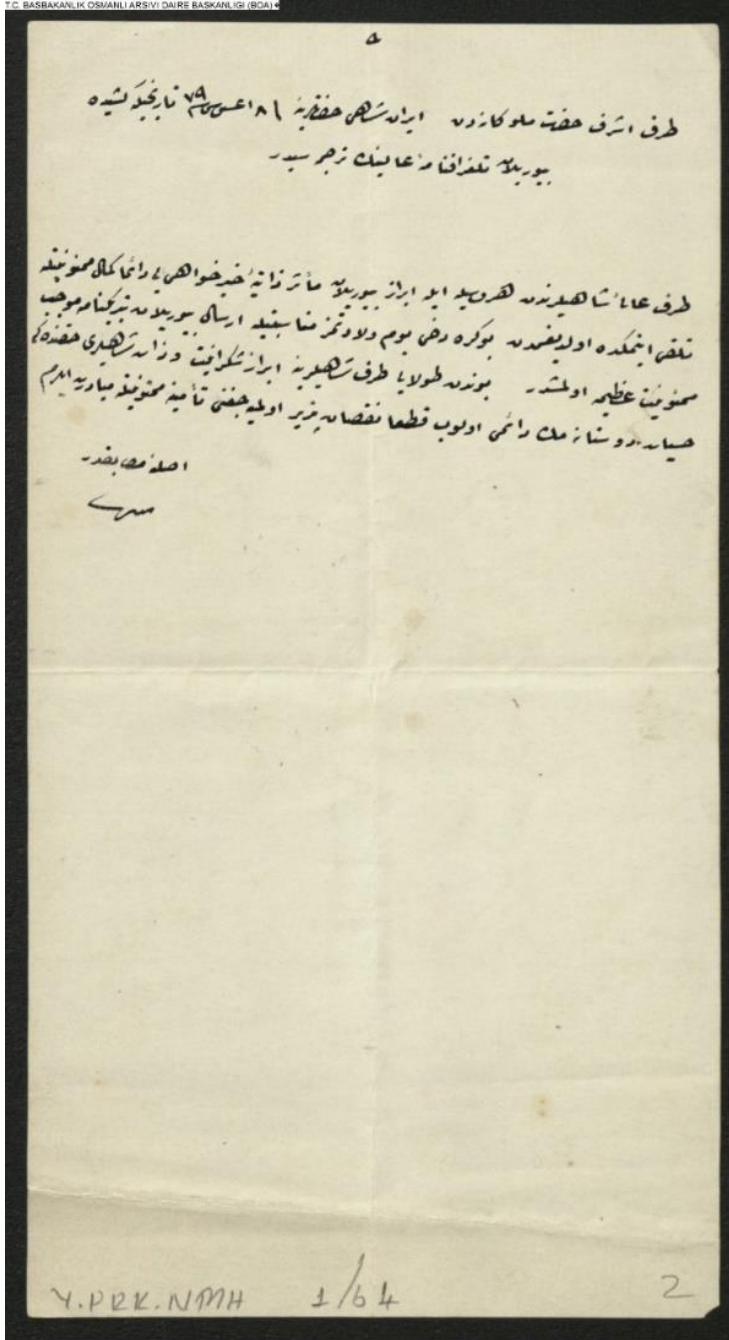 T.C. BASBAKANLIK OSMANLI ARSIVI DAIRE BASKANLIGI (BOA)
٥
طرف اشرف حضرت ملوكانه دن ايران شاهی حضرتلرينه ١٨ اغستوس ٧٩ تاريخيله كشيده
بيوريلان تلغرافنامهٔ عالينك ترجمه سيدر
طرف عالئ شاهيلرندن هر وسيله ايله ابراز بيوريلان مآثر ذاتيهٔ خيرخواهی يی دائما كمال ممنونيتله
تلقی ايتمكده اولديغمدن بوكره دخی يوم ولادتمز مناسبتيله ارسال بيوريلان تبريكنامه موجب
ممنونيت عظيمه اولمشدر بوندن طولايی طرف شاهيلرينه ابراز تشكر ايدر و ذات شاهيلری حقنده كی
حسيات دوستانه مك دائمی اولوب قطعا نقصان پذير اولميه جغنی تأمينه ممنونيتله مبادرت ايلرم
اصلنه مطابقدر
Y.PRK.NMH 1/64 2